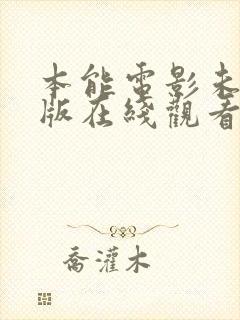 本能電影未
版在綫觀看
喬灌木